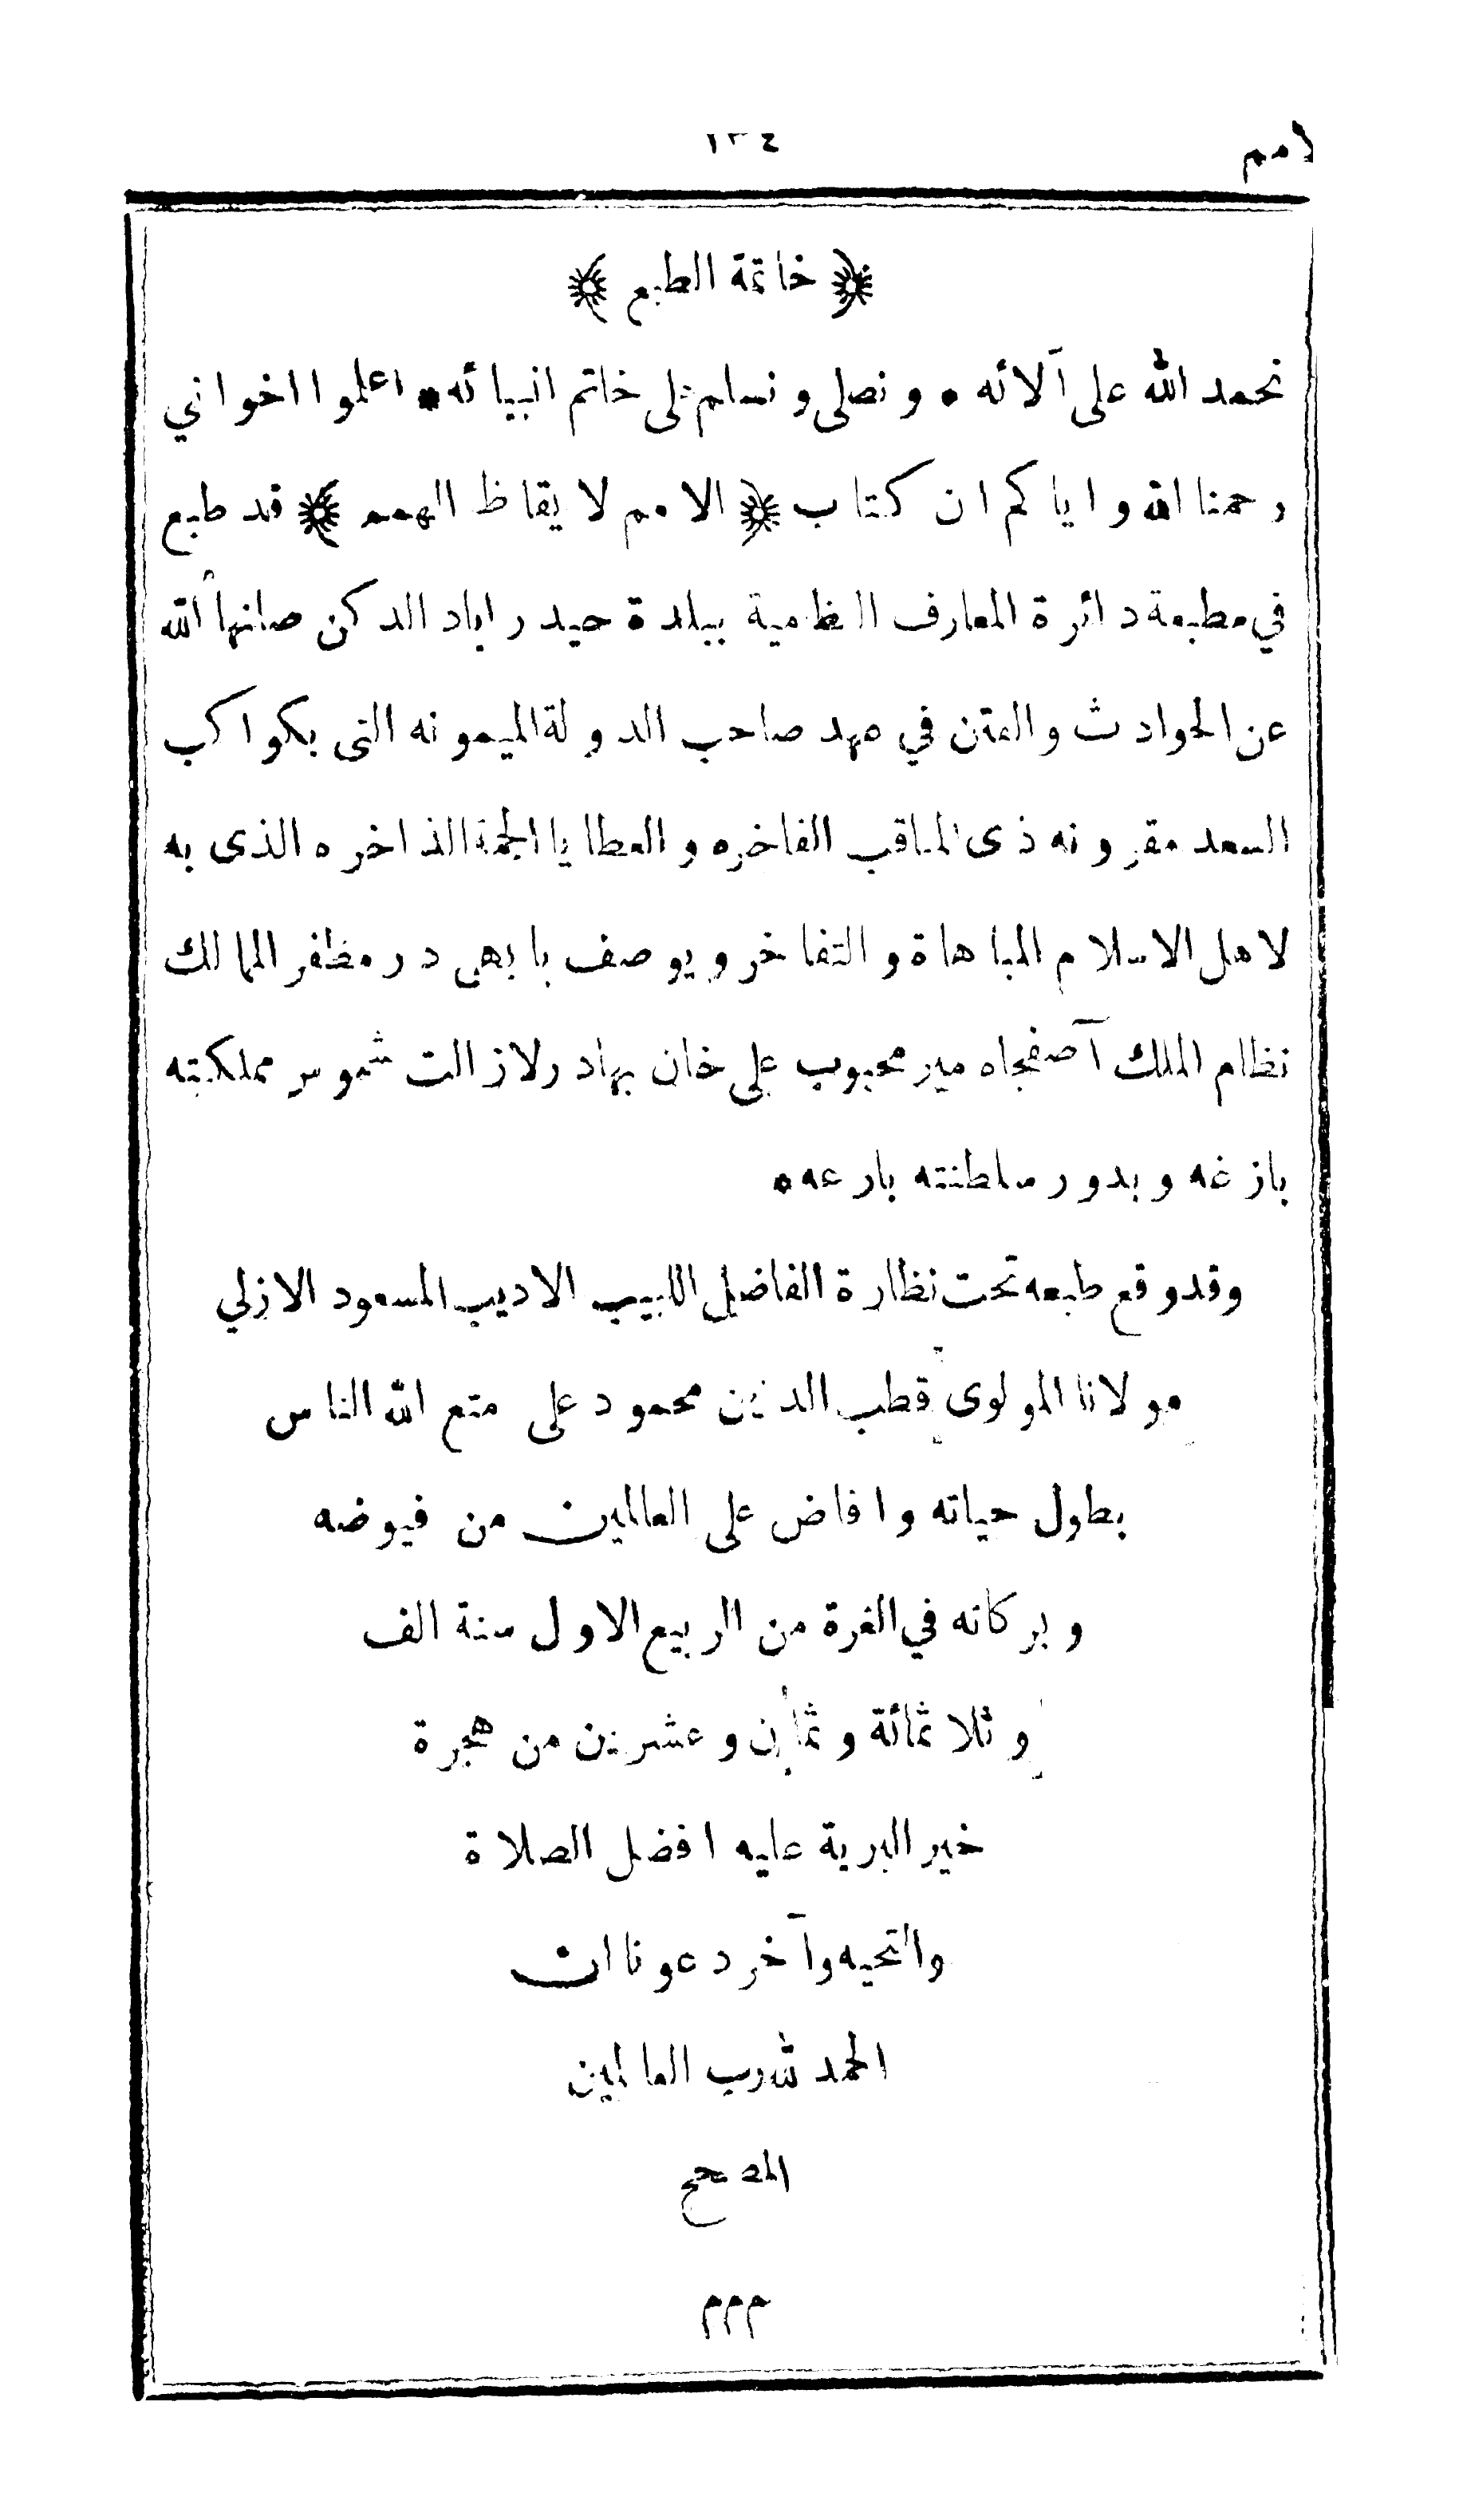 لامم
١٣٤
﴿ خاتمة الطبع ﴾
نحمد الله على آلائه • ونصلى ونسلم على خاتم انبيائه • اعلموا اخواني
رحمنا الله واياكم ان كتاب ﴿ الامم لايقاظ الهمم ﴾ قد طبع
في مطبعة دائرة المعارف النظامية ببلدة حيدراباد الدكن صانها الله
عن الحوادث والفتن في عهد صاحب الدولة الميمونه التى بكواكب
السعد مقرونه ذى المناقب الفاخره والعطايا الجمة الذاخره الذى به
لاهل الاسلام المباهاة والتفاخر ويوصف بابهى در مظفر الممالك
نظام الملك آصفجاه مير محبوب على خان بهادر لازالت شموس مملكته
بازغه وبدور سلطنته بارعه •
وقد وقع طبعه تحت نظارة الفاضل اللبيب الاديب المسعود الازلي
مولانا المولوى قطب الدين محمود على متع الله الناس
بطول حياته وافاض على العالمين من فيوضه
وبركاته في الغرة من الربيع الاول سنة الف
وثلاثمائة وثمان وعشرين من هجرة
خير البرية عليه افضل الصلاة
والتحيه وآخر دعونا ان
الحمد لله رب العالمين
المصحح
م م م